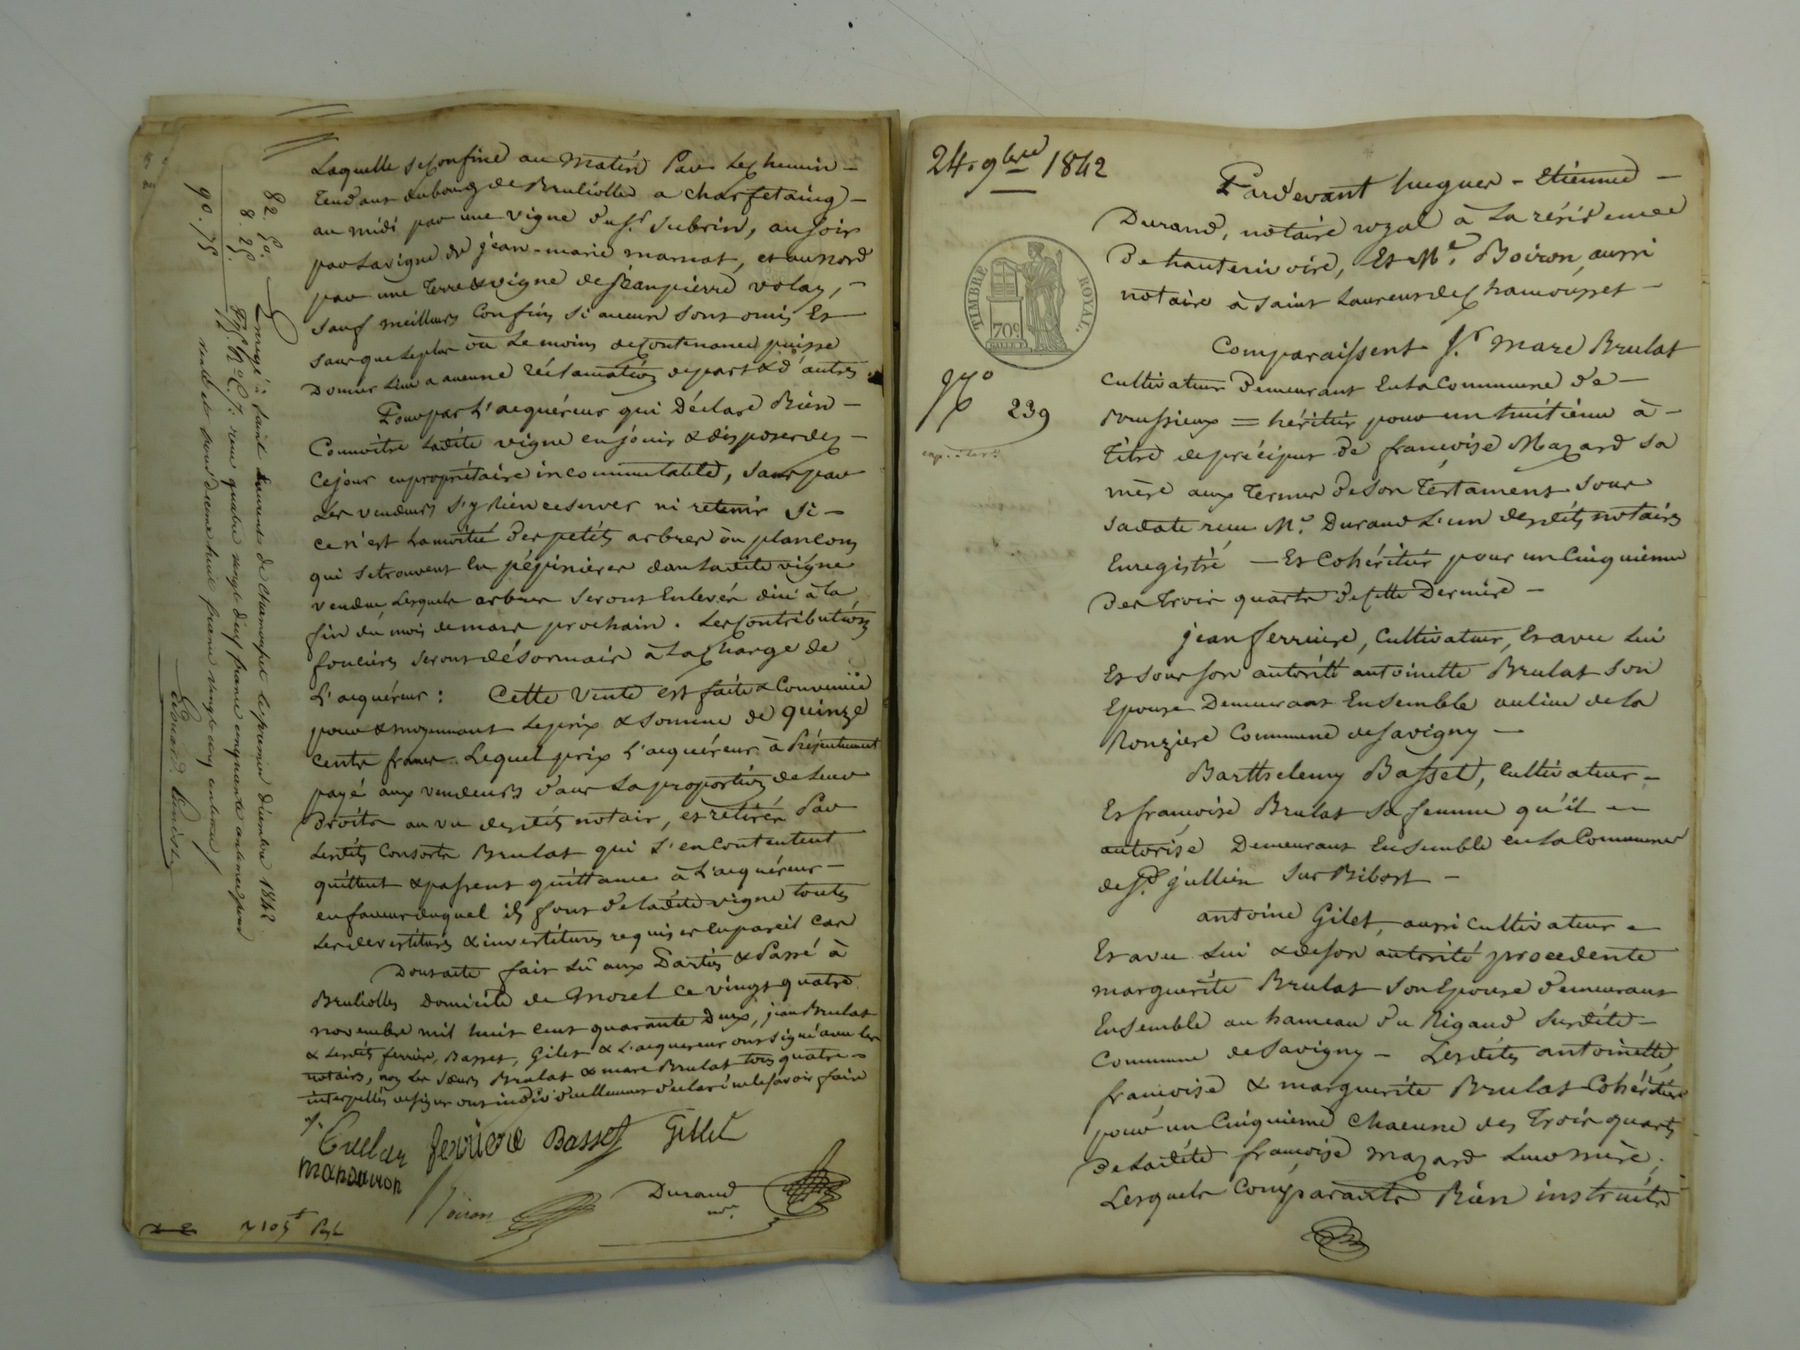 Laquelle se confine au matin par le chemin -
tendant du bourg de Brulliolles a charfetaing -
au midi par une vigne du sr. Subrin, au soir
par la vigne de jean-marie marnat, et au nord
par une terre & vigne de jean pierre volay, -
sauf meilleurs confins si aucun sont omis Et
sans que le plus ou le moins de contenance puisse
Donner lieu a aucune réclamation de part & d'autres.
Pour par l'acquéreur qui Déclare Bien -
Connoitre ladite vigne en jouir & disposer dez -
Ce jour en propriétaire incommutable, sans par
Les vendeurs s'y rien reserver ni retenir si -
ce n'est la moitié des petits arbres ou plançons
qui se trouvent en pépinieres dans ladite vigne
vendue, Lesquels arbres seront Enlevés d'ici à la
fin du mois de mars prochain. Les Contributions
foncières seront désormais à la Charge de
L'acquéreur : Cette vente est faite & Convenüe
pour & moyennant le prix & somme de quinze
Cents francs. Lequel prix l'acquéreur à Présentement
payé aux vendeurs dans la proportion de leurs
Droits au vu desdits notair, et retirés Par
Lesdits Consorts Brulat qui s'en contentent
quittent & passent quittance à L'acquéreur -
en faveur duquel ils font de ladite vigne toutes
Les devestitures & investitures requises en pareil cas
Dont acte fait Lû aux Parties & Passé à
Brulliolles Domicile de Morel Ce vingt quatre
novembre mil huit cent quarante deux, jean Brulat
& Lesdits ferrière, Basset, Gilet & L'acquereur ont signé avec les
notaires, non les sœurs Brulat & marc Brulat tous quatre -
interpellés de signer ont individuellement déclaré ne le savoir faire
ferriere Basset Gillet
mandaron
Boiron Durand
nre.
82. 50.
8. 25.
90. 75
Enregé. à saint Laurent de Chamousset le premier décembre 1842
reçu quatre vingt deux francs cinquante centimes pour
vente et pour dixieme huit francs vingt cinq centimes
24. 9bre 1842
TIMBRE ROYAL.
70c
No
239
Pardevant Jacques - Etienne -
Durand, notaire royal à la résidence
De hauterivoire, Et Me. Boiron, aussi
notaire à Saint Laurent de Chamousset -
Comparaissent Sr. Marc Brulat
Cultivateur Demeurant En la Commune de -
Brussieux = héritier pour un huitième à -
Titre de préciput de francoise Mazard sa
mère aux termes de son testament sous
sa date reçu Me. Durand L'un desdits notaires
Enregistré - Et Cohéritier pour un Cinquieme
Des trois quarts de cette Dernière -
jean ferriere, Cultivateur, Et avec lui
Et sous son autorité antoinette Brulat son
Epouse Demeurant Ensemble au lieu de la
Ronziere Commune de Savigny -
Barthelemy Basset, Cultivateur -
Et francoise Brulat sa femme qu'il -
autorise Demeurant Ensemble en la Commune
de St. jullien sur Bibost -
antoine Gilet, aussi Cultivateur -
Et avec Lui & de son autorité procedente
marguerite Brulat son Epouse demeurant
Ensemble au hameau du Rigaud susdite -
Commune de Savigny - Lesdites antoinette,
francoise & marguerite Brulat Cohéritières
pour un Cinquieme Chacune des trois quarts
De Ladite francoise mazard leur mère ;
Lesquels Comparants Bien instruits